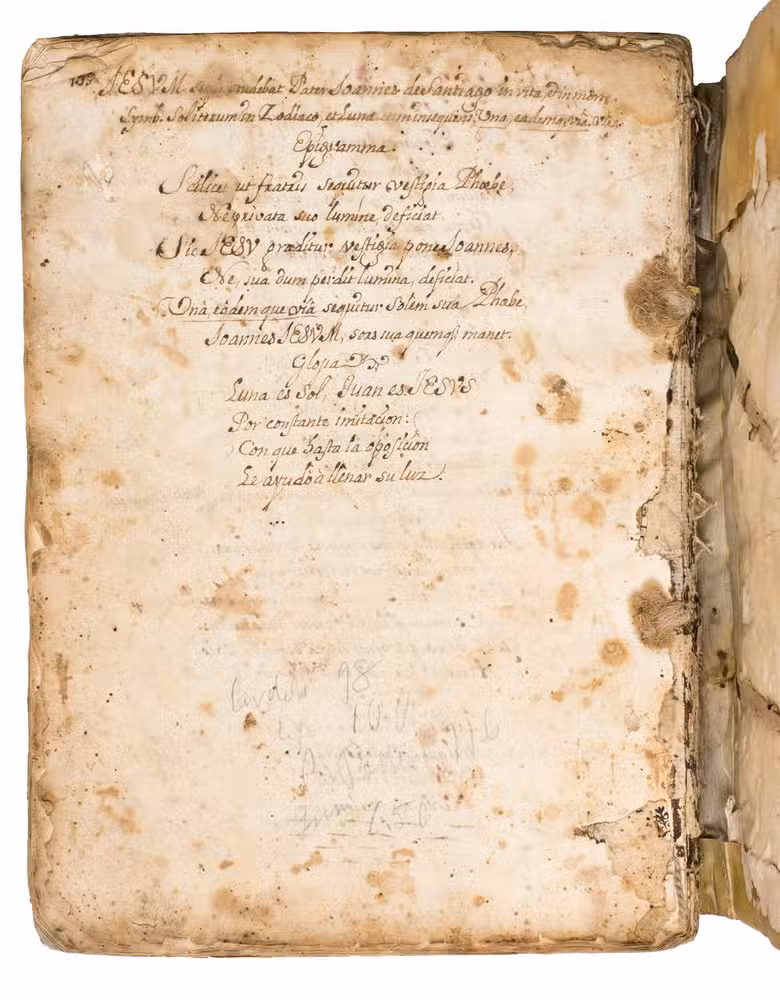 103. IESVM sequi studebat Pater Ioannes de Santiago in vita, & in morte.
Symb. Sol iterum in Zodiaco, et Luna eum insequens, Una, eademq, viâ. Vir.
Epigramma.
Scilicet ut fratris sequitur vestigia Phœbe,
Ne privata suo lumine deficiat
Sic IESV præditur vestigia pone Ioannes,
Ne, sua dum perdit lumina, deficiat.
Unâ, eâdemque viâ sequitur Solem sua Phœbe,
Ioannes IESVM, sors sua quemq; manet.
Glosa
Luna es Sol, Juan es IESVS
Por constante imitacion:
Con que hasta la oposicion
Le ayudò à llenar su luz.
98